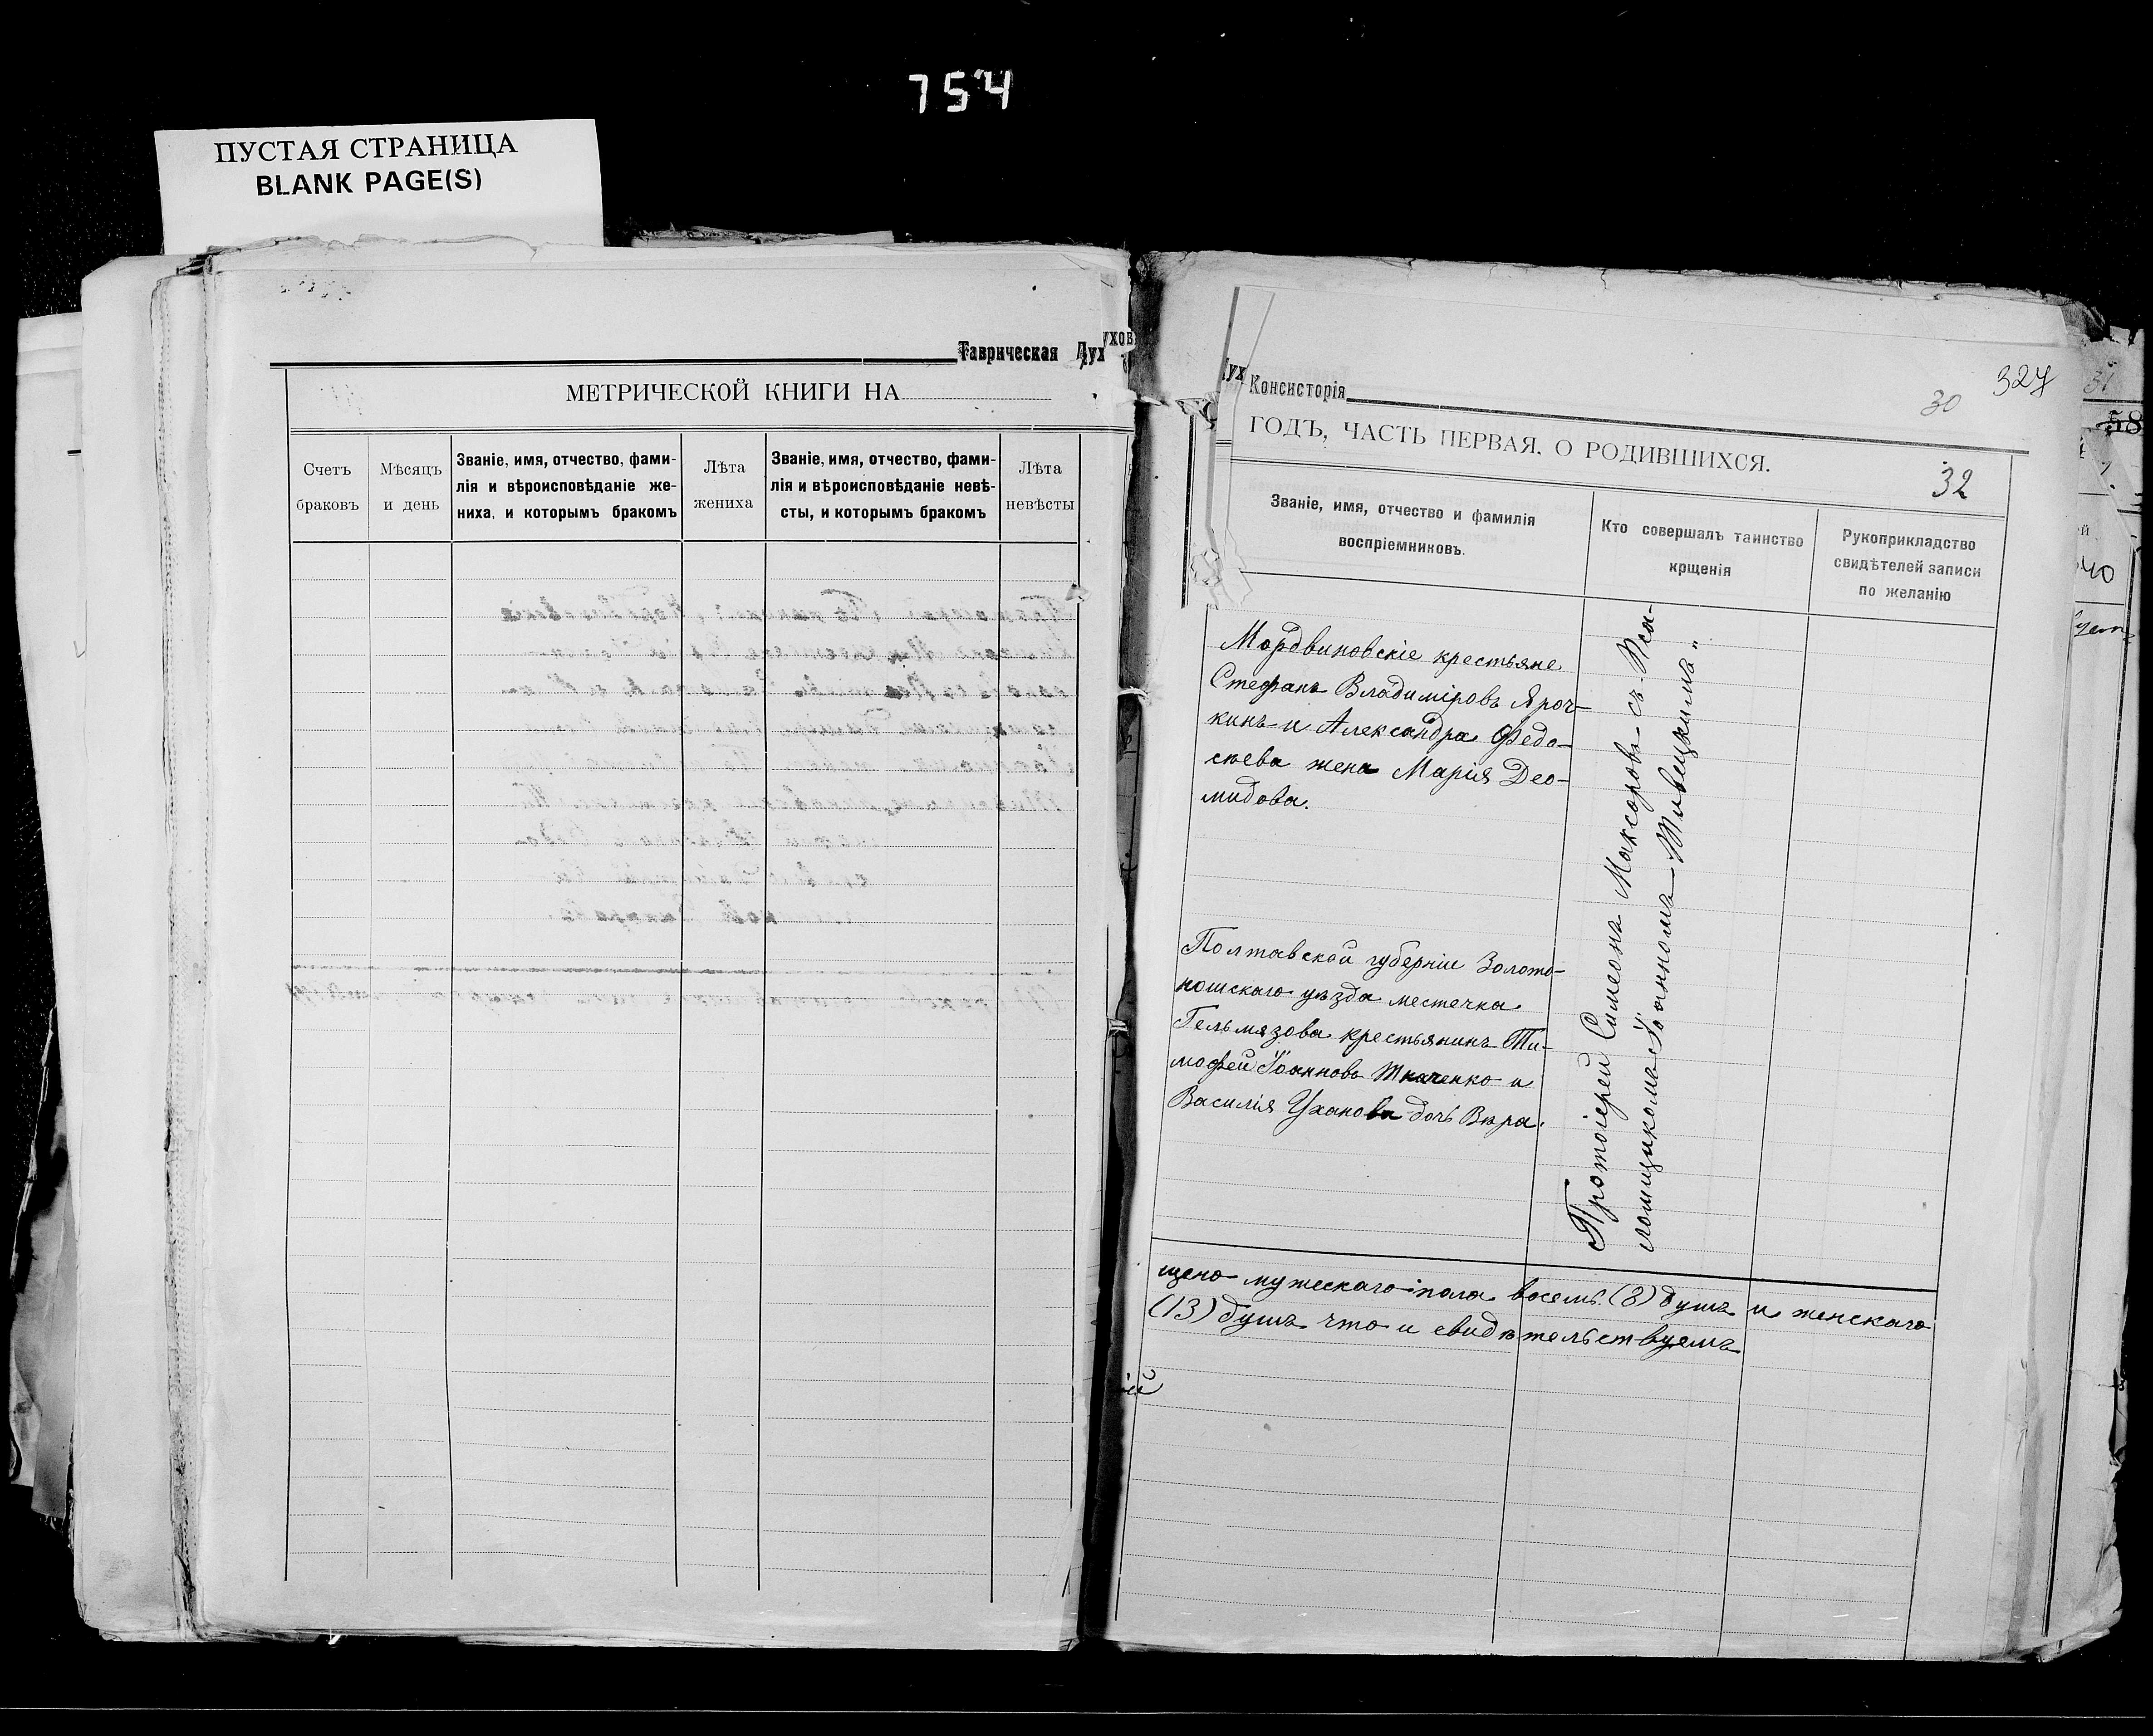 754
ПУСТАЯ СТРАНИЦА
BLANK PAGE(S)
Таврическая Дух
МЕТРИЧЕСКОЙ КНИГИ НА
Счетъ браковъ
Мѣсяцъ и день
Званіе, имя, отчество, фами-
лія и вѣроисповѣданіе же-
ниха, и которымъ бракомъ
Лѣта жениха
Званіе, имя, отчество, фами-
лія и вѣроисповѣданіе невѣ-
сты, и которымъ бракомъ
Лѣта невѣсты
ухов
Консисторія
327
30
ГОДЪ, ЧАСТЬ ПЕРВАЯ, О РОДИВШИХСЯ.
32
Званіе, имя, отчество и фамилія
воспріемниковъ.
Кто совершалъ таинство
крщенія
Рукоприкладство
свидѣтелей записи
по желанію
Мордвиновскіе крестьяне
Стефанъ Владиміровъ Яроч-
кинъ и Александра Федо-
сѣева жена Марія Део-
мидова.
Полтавской губерніи Золото-
ношскаго уѣзда местечка
Гельмязова крестьянинъ Ти-
мофей Іоанновъ Ткаченко и
Василія Уханова дочь Вѣра.
Протоіерей Симеонъ Максоровъ съ Пса-
ломщикомъ Іоанномъ Тивецкимъ„
щено мужескаго пола восемь (8) душъ и женскаго
(13) душъ что и свидѣтельствуемъ
ій
31
58
40